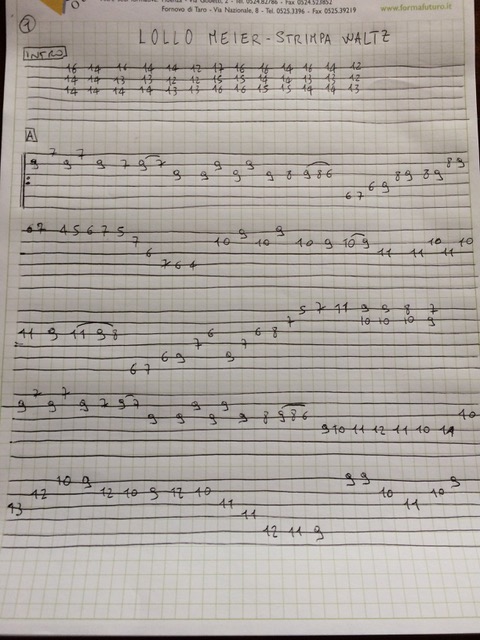 Fornovo di Taro - Via Nazionale, 8 - Tel. 0525.3396 - Fax 0525.39219
www.formafuturo.it
1
LOLLO MEIER - STRIMPA WALTZ
INTRO
16 14 16 14 14 12 17 16 16 14 16 14 12
14 14 13 13 12 12 15 15 14 14 13 13 12
14 14 14 14 13 13 16 16 15 15 14 14 13
A
9 7 9 7 9 7 9 7 9 9 9 9 9 9 8 9 8 6 6 7 6 9 8 9 8 9 8 9
6 7 4 5 6 7 5 7 6 7 6 4 10 9 10 9 10 9 10 9 11 11 10 11 10
11 9 11 9 8 6 7 6 9 7 6 9 7 6 8 7 5 7 11 9 9 8 7
10 10 10 9
9 7 9 7 9 7 9 7 9 9 9 9 9 8 9 8 6 9 10 11 12 11 10 10
13 12 10 9 12 10 9 12 10 11 11 12 11 9 9 9 10 11 10 9